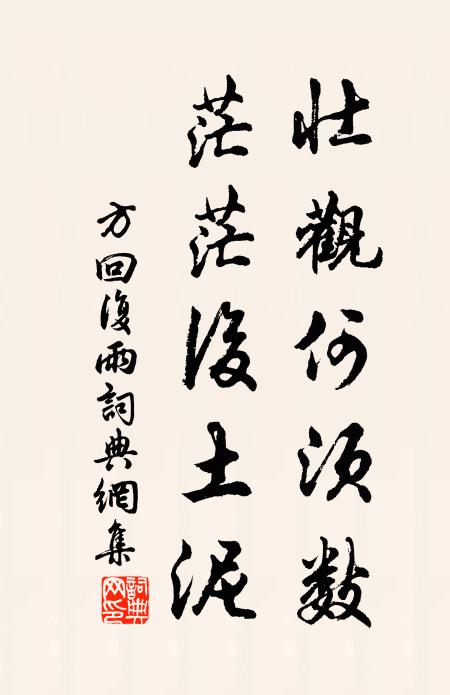 壯觀何須數
茫茫後土泥
方回復雨詞典網集
詞典網印